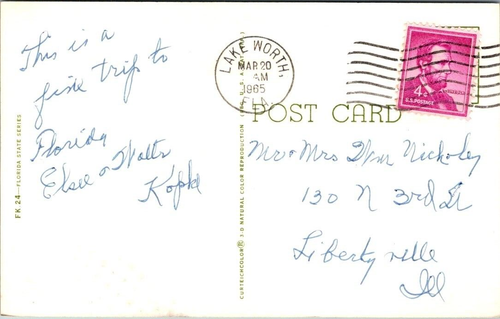 This is a
fine trip to
Florida
Elsie & Walter
FK 24—FLORIDA STATE SERIES
LAKE WORTH,
MAR 20
AM
1965
FLA.
4¢
U.S. POSTAGE
POST CARD
CURTEICHCOLOR® 3-D NATURAL COLOR REPRODUCTION
Mr & Mrs Wm
130 N 3rd St
Libertyville
Ill